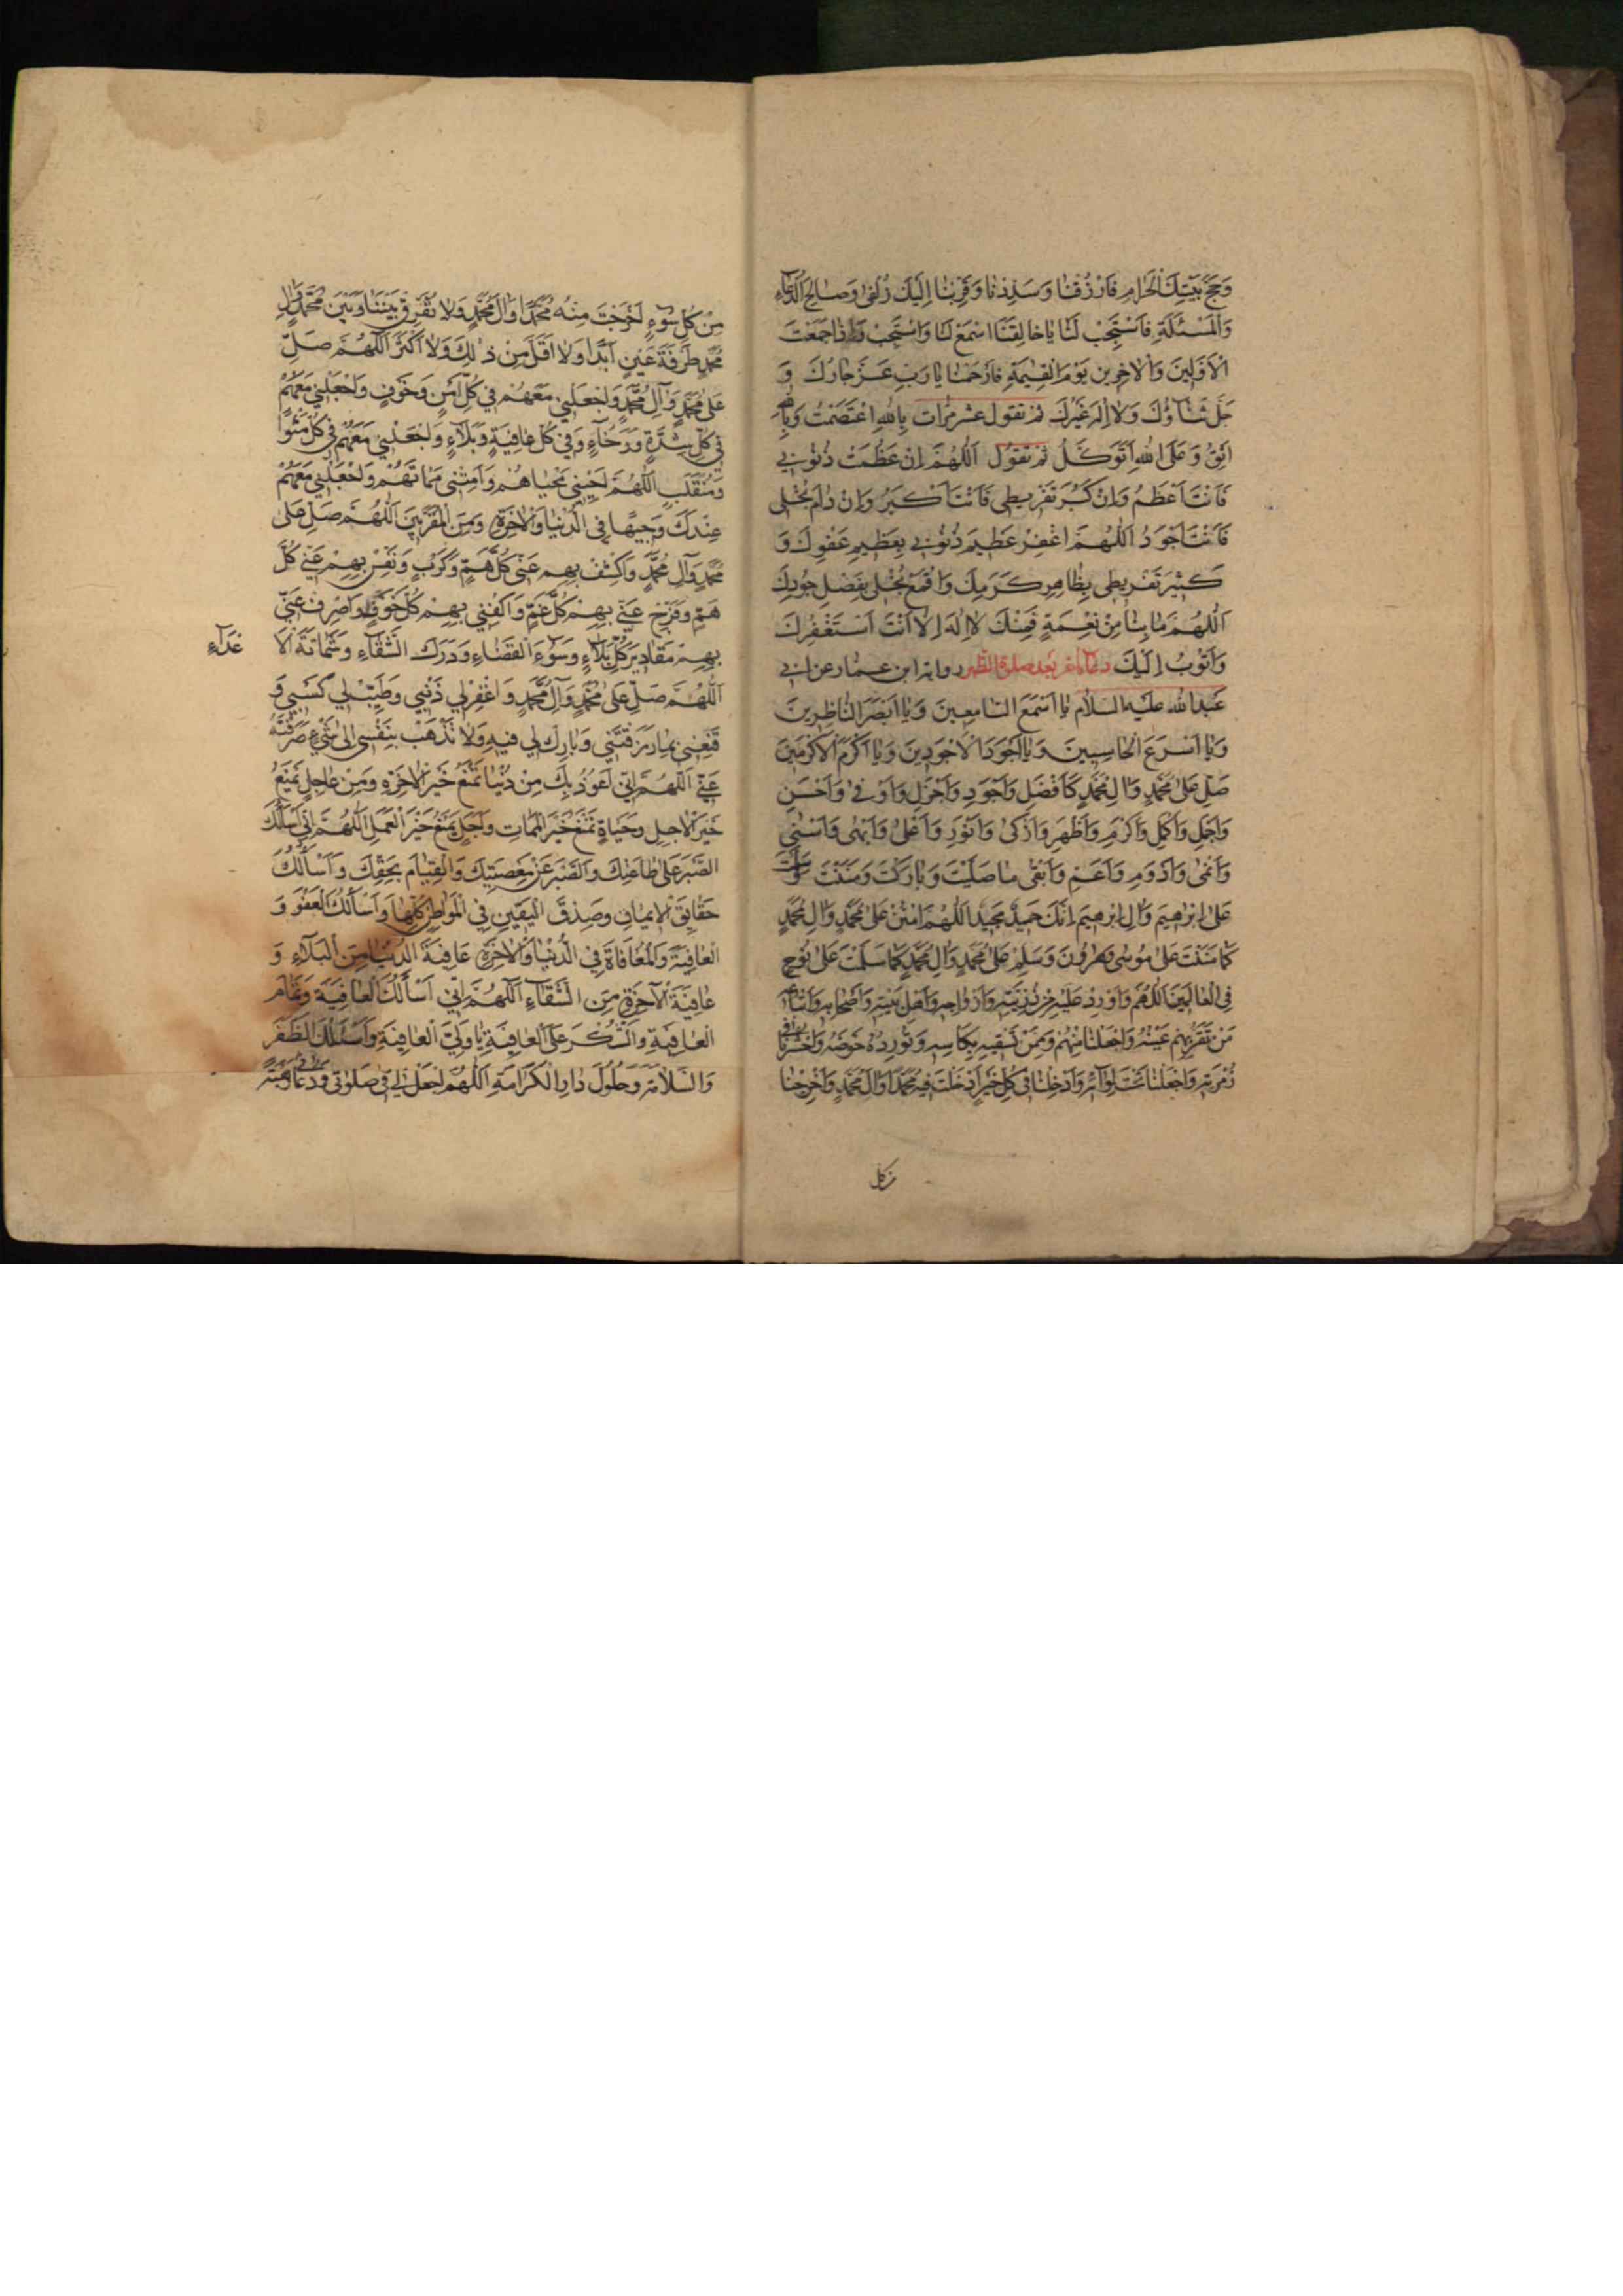 وَحَجَّ بَيْتِكَ الْحَرَامِ فَارْزُقْنَا وَسَدِّدْنَا وَقَرِّبْنَا إِلَيْكَ زُلْفَى وَصَالِحَ الدُّعَاءِ
وَالْمَسْئَلَةِ فَاسْتَجِبْ لَنَا يَا خَالِقَنَا اسْمَعْ لَنَا وَاسْتَجِبْ وَإِذَا جَمَعْتَ
الْأَوَّلِينَ وَالْآخِرِينَ يَوْمَ الْقِيٰمَةِ فَارْحَمْنَا يَا رَبِّ عَزَّ جَارُكَ وَ
جَلَّ ثَنَاؤُكَ وَلَا إِلٰهَ غَيْرُكَ ثم تقول عشر مرات بِاللّٰهِ اعْتَصَمْتُ وَبِاللّٰهِ
أَثِقُ وَعَلَى اللّٰهِ أَتَوَكَّلُ ثم تقول اَللّٰهُمَّ إِنْ عَظُمَتْ ذُنُوبِي
فَأَنْتَ أَعْظَمُ وَإِنْ كَبُرَ تَفْرِيطِي فَأَنْتَ أَكْبَرُ وَإِنْ دَامَ بُخْلِي
فَأَنْتَ أَجْوَدُ اَللّٰهُمَّ اغْفِرْ عَظِيمَ ذُنُوبِي بِعَظِيمِ عَفْوِكَ وَ
كَثِيرَ تَفْرِيطِي بِظَاهِرِ كَرَمِكَ وَاقْمَعْ بُخْلِي بِفَضْلِ جُودِكَ
اَللّٰهُمَّ مَا بِنَا مِنْ نِعْمَةٍ فَمِنْكَ لَا إِلٰهَ إِلَّا أَنْتَ أَسْتَغْفِرُكَ
وَأَتُوبُ إِلَيْكَ دعاء اخر بعد صلوة الظهر رواية ابن عمار عن ابي
عبد الله عليه السلام يَا أَسْمَعَ السَّامِعِينَ وَيَا أَبْصَرَ النَّاظِرِينَ
وَيَا أَسْرَعَ الْحَاسِبِينَ وَيَا أَجْوَدَ الْأَجْوَدِينَ وَيَا أَكْرَمَ الْأَكْرَمِينَ
صَلِّ عَلَى مُحَمَّدٍ وَآلِ مُحَمَّدٍ كَأَفْضَلِ وَأَجْوَدِ وَأَجْزَلِ وَأَوْفَى وَأَحْسَنِ
وَأَجْمَلِ وَأَكْمَلِ وَأَكْرَمِ وَأَطْهَرِ وَأَزْكَى وَأَنْوَرِ وَأَعْلَى وَأَبْهَى وَأَسْنَى
وَأَنْمَى وَأَدْوَمِ وَأَعَمِّ وَأَبْقَى مَا صَلَّيْتَ وَبَارَكْتَ وَمَنَنْتَ وَسَلَّمْتَ
عَلَى إِبْرٰهِيمَ وَآلِ إِبْرٰهِيمَ إِنَّكَ حَمِيدٌ مَجِيدٌ اَللّٰهُمَّ امْنُنْ عَلَى مُحَمَّدٍ وَآلِ مُحَمَّدٍ
كَمَا مَنَنْتَ عَلَى مُوسَى وَهٰرُونَ وَسَلِّمْ عَلَى مُحَمَّدٍ وَآلِ مُحَمَّدٍ كَمَا سَلَّمْتَ عَلَى نُوحٍ
فِي الْعَالَمِينَ اَللّٰهُمَّ وَأَوْرِدْ عَلَيْهِ مِنْ ذُرِّيَّتِهِ وَأَزْوَاجِهِ وَأَهْلِ بَيْتِهِ وَأَصْحَابِهِ وَأَتْبَاعِهِ
مَنْ تَقَرُّ بِهِمْ عَيْنُهُ وَاجْعَلْنَا مِنْهُمْ وَمِمَّنْ تَسْقِيهِ بِكَأْسِهِ وَتُورِدُهُ حَوْضَهُ وَاحْشُرْنَا فِي
زُمْرَتِهِ وَاجْعَلْنَا تَحْتَ لِوَائِهِ وَأَدْخِلْنَا فِي كُلِّ خَيْرٍ أَدْخَلْتَ فِيهِ مُحَمَّدًا وَآلَ مُحَمَّدٍ وَأَخْرِجْنَا
من كل
مِنْ كُلِّ سُوءٍ أَخْرَجْتَ مِنْهُ مُحَمَّدًا وَآلَ مُحَمَّدٍ وَلَا تُفَرِّقْ بَيْنَنَا وَبَيْنَ مُحَمَّدٍ وَآلِ
مُحَمَّدٍ طَرْفَةَ عَيْنٍ أَبَدًا وَلَا أَقَلَّ مِنْ ذٰلِكَ وَلَا أَكْثَرَ اَللّٰهُمَّ صَلِّ
عَلَى مُحَمَّدٍ وَآلِ مُحَمَّدٍ وَاجْعَلْنِي مَعَهُمْ فِي كُلِّ أَمْنٍ وَخَوْفٍ وَاجْعَلْنِي مَعَهُمْ
فِي كُلِّ شِدَّةٍ وَرَخَاءٍ وَفِي كُلِّ عَافِيَةٍ وَبَلَاءٍ وَاجْعَلْنِي مَعَهُمْ فِي كُلِّ مَثْوًا
وَمُنْقَلَبٍ اَللّٰهُمَّ أَحْيِنِي مَحْيَاهُمْ وَأَمِتْنِي مَمَاتَهُمْ وَاجْعَلْنِي مَعَهُمْ
عِنْدَكَ وَجِيهًا فِي الدُّنْيَا وَالْآخِرَةِ وَمِنَ الْمُقَرَّبِينَ اَللّٰهُمَّ صَلِّ عَلَى
مُحَمَّدٍ وَآلِ مُحَمَّدٍ وَاكْشِفْ بِهِمْ عَنِّي كُلَّ هَمٍّ وَكَرْبٍ وَنَفِّسْ بِهِمْ عَنِّي كُلَّ
هَمٍّ وَفَرِّجْ عَنِّي بِهِمْ كُلَّ غَمٍّ وَاكْفِنِي بِهِمْ كُلَّ خَوْفٍ وَاصْرِفْ عَنِّي
بِهِمْ مَقَادِيرَ كُلِّ بَلَاءٍ وَسُوءَ الْقَضَاءِ وَدَرَكَ الشَّقَاءِ وَشَمَاتَةَ الْأَ
عْدَاءِ
اَللّٰهُمَّ صَلِّ عَلَى مُحَمَّدٍ وَآلِ مُحَمَّدٍ وَاغْفِرْ لِي ذَنْبِي وَطَيِّبْ لِي كَسْبِي وَ
قَنِّعْنِي بِمَا رَزَقْتَنِي وَبَارِكْ لِي فِيهِ وَلَا تَذْهَبْ بِنَفْسِي إِلَى شَيْءٍ صَرَفْتَهُ
عَنِّي اَللّٰهُمَّ إِنِّي أَعُوذُ بِكَ مِنْ دُنْيَا تَمْنَعُ خَيْرَ الْآخِرَةِ وَمِنْ عَاجِلٍ يَمْنَعُ
خَيْرَ الْآجِلِ وَحَيَاةٍ تَمْنَعُ خَيْرَ الْمَمَاتِ وَأَجَلٍ يَمْنَعُ خَيْرَ الْعَمَلِ اَللّٰهُمَّ إِنِّي أَسْأَلُكَ
الصَّبْرَ عَلَى طَاعَتِكَ وَالصَّبْرَ عَنْ مَعْصِيَتِكَ وَالْقِيَامَ بِحَقِّكَ وَأَسْأَلُكَ
حَقَايِقَ الْإِيمَانِ وَصِدْقَ الْيَقِينِ فِي الْمَوَاطِنِ كُلِّهَا وَأَسْأَلُكَ الْعَفْوَ وَ
الْعَافِيَةَ وَالْمُعَافَاةَ فِي الدُّنْيَا وَالْآخِرَةِ عَافِيَةَ الدُّنْيَا مِنَ الْبَلَاءِ وَ
عَافِيَةَ الْآخِرَةِ مِنَ الشَّقَاءِ اَللّٰهُمَّ إِنِّي أَسْأَلُكَ الْعَافِيَةَ وَتَمَامَ
الْعَافِيَةِ وَالشُّكْرَ عَلَى الْعَافِيَةِ يَا وَلِيَّ الْعَافِيَةِ وَأَسْئَلُكَ الظَّفَرَ
وَالسَّلَامَةَ وَحُلُولَ دَارِ الْكَرَامَةِ اَللّٰهُمَّ اجْعَلْ لِي فِي صَلٰوتِي وَدُعَائِي رَهْبَةً